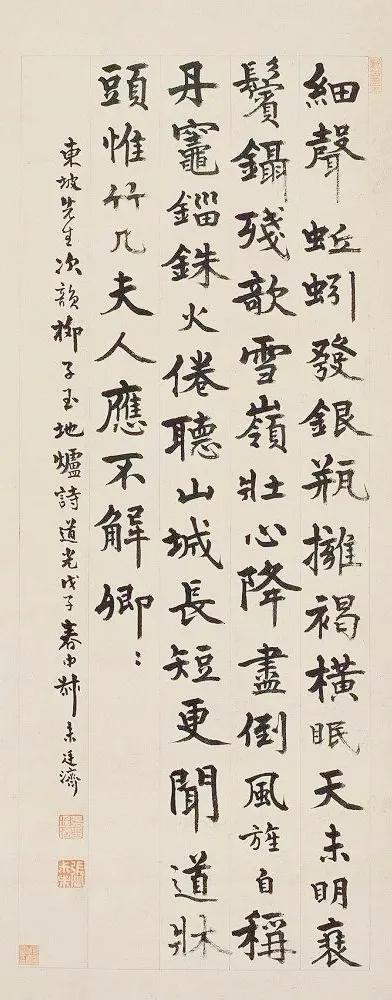 細聲蚯蚓發銀瓶擁褐橫眠天未明衰
鬢鑷殘欹雪嶺壯心降盡倒風旌自稱
丹竈錙銖火倦聽山城長短更聞道牀
頭惟竹几夫人應不解卿：
東坡先生次韻柳子玉地爐詩道光戊子春中叔未廷濟